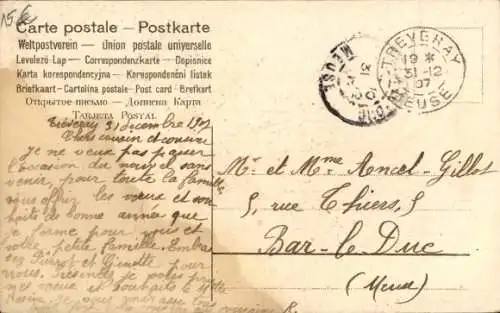 15€
Carte postale – Postkarte
Weltpostverein – Union postale universelle
Levelező-Lap – Correspondenzkarte – Dopisnice
Karta korespondencyjna – Korespondenční lístek
Briefkaart – Cartolina postale – Post card – Brefkort
Открытое письмо – Дописна Карта
Tarjeta Postal
TREVERAY
19 *
31-12
07
MEUSE
MEUSE
31
Tréveray 31 décembre 1907
Chers cousin et cousine
Je ne veux pas passer
l'occasion du
venir, pour toute la famille
vous offrir les vœux et sou-
haits de bonne année que
je forme pour vous et
votre petite famille. Embras-
sez Pierrot et Ginette pour
nous.
mes vœux et souhaits à Mlle
Mr et Mme Ancel-Gillot
5, rue Thiers, 5
Bar-le-Duc
(Meuse)